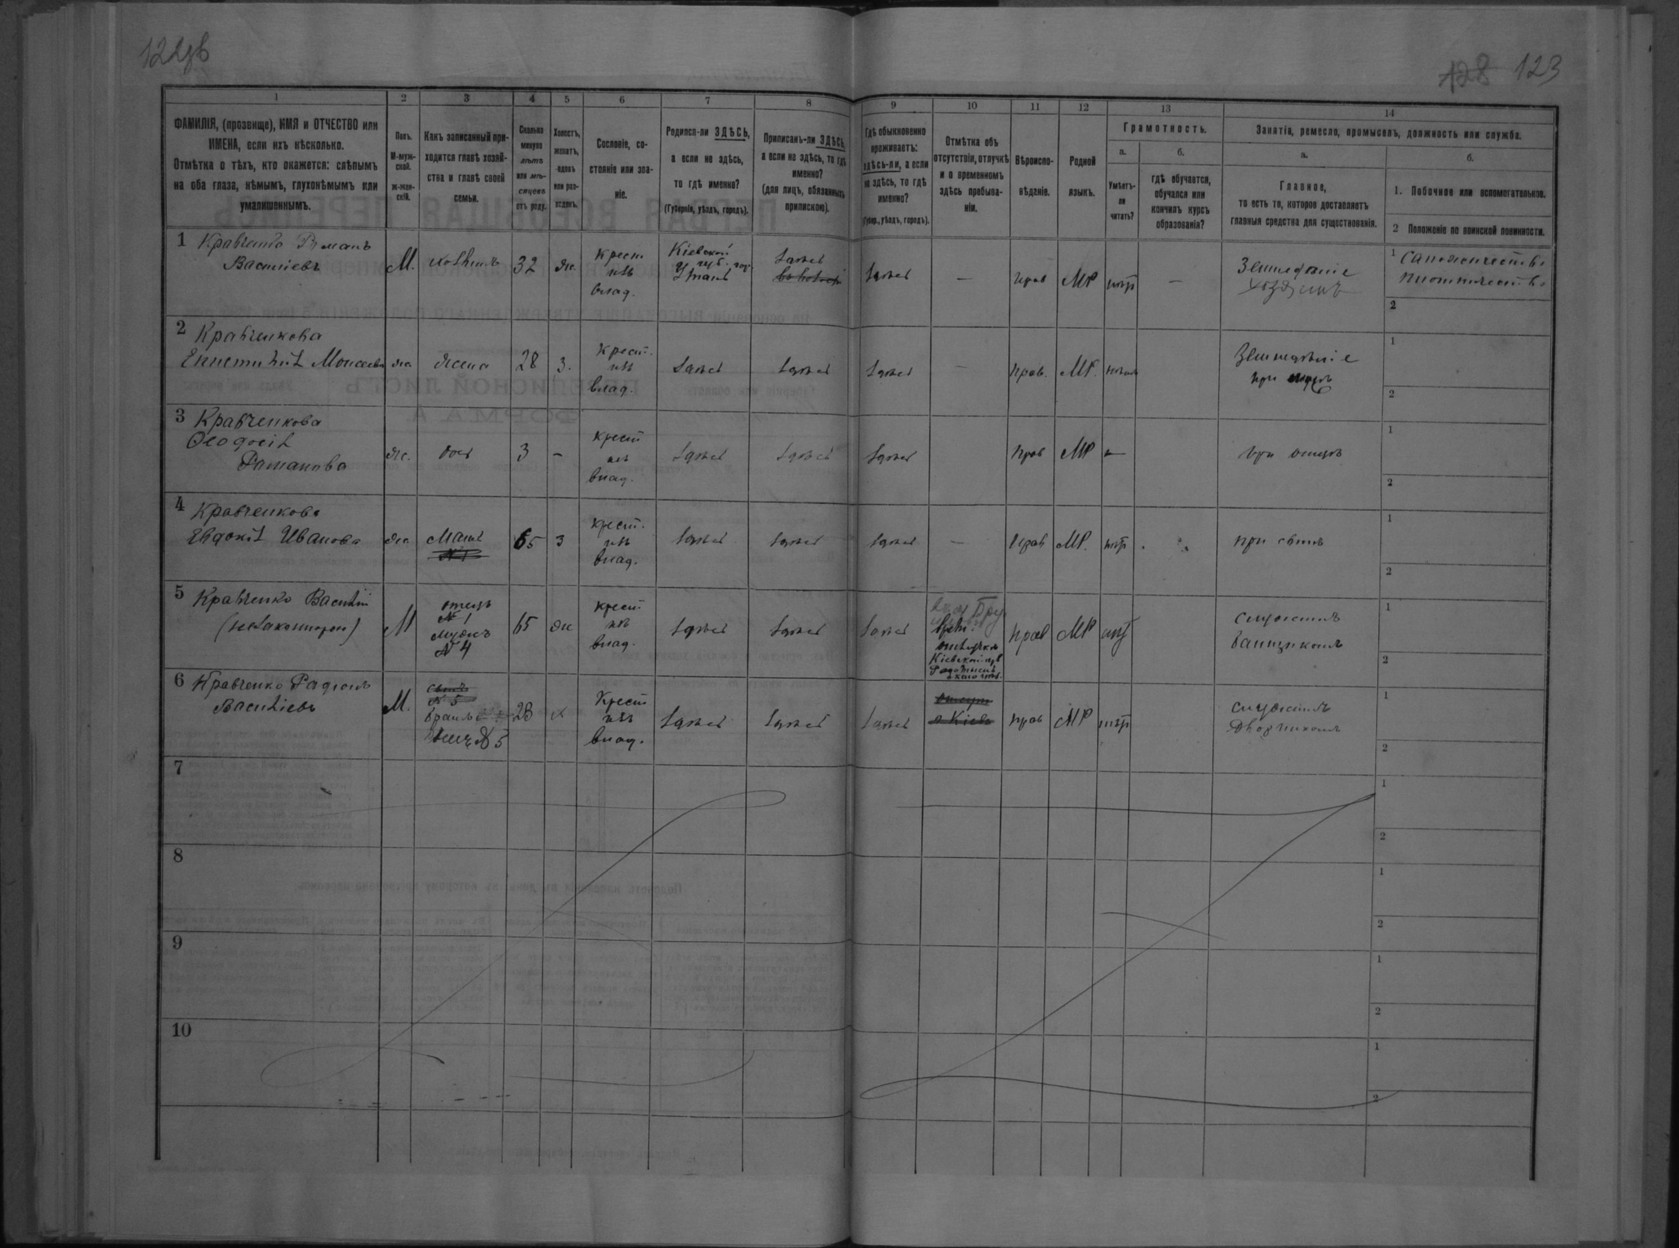 122об
128 123
1
2
3
4
5
6
7
8
9
10
11
12
13
14
ФАМИЛІЯ, (прозвище), ИМЯ и ОТЧЕСТВО или
ИМЕНА, если ихъ нѣсколько.
Отмѣтка о тѣхъ, кто окажется: слѣпымъ
на оба глаза, нѣмымъ, глухонѣмымъ или
умалишеннымъ.
Полъ.
М-муж-
ской.
Ж-жен-
скій.
Какъ записанный при-
ходится главѣ хозяй-
ства и главѣ своей
семьи.
Сколько
минуло
лѣтъ
или мѣ-
сяцевъ
отъ роду.
Холостъ,
женатъ,
вдовъ
или раз-
веденъ.
Сословіе, со-
стояніе или зва-
ніе.
Родился-ли ЗДѢСЬ,
а если не здѣсь,
то гдѣ именно?
(Губернія, уѣздъ, городъ).
Приписанъ-ли ЗДѢСЬ,
а если не здѣсь, то гдѣ
именно?
(для лицъ, обязанныхъ
припискою).
Гдѣ обыкновенно
проживаетъ:
здѣсь-ли, а если
не здѣсь, то гдѣ
именно?
(Губер., уѣздъ, городъ).
Отмѣтка объ
отсутствіи, отлучкѣ
и о временномъ
здѣсь пребыва-
ніи.
Вѣроиспо-
вѣданіе.
Родной
языкъ.
Грамотность.
а.
Умѣетъ-
ли
читать?
б.
гдѣ обучается,
обучался или
кончилъ курсъ
образованія?
Занятія, ремесло, промыселъ, должность или служба.
а.
Главное,
то есть то, которое доставляетъ
главныя средства для существованія.
б.
1. Побочное или вспомогательное.
2 Положеніе по воинской повинности.
1 Кравченко Романъ
Васильевъ
М.
хозяинъ
32
ж.
Крест
изъ
влад.
Кіевской
губ. гор.
Умань
здѣсь
здѣсь
—
прав
МР
нѣтъ
—
Земледѣліе
хозяинъ
1 Сапожничество
плотничество
2
2 Кравченкова
Моисеева
жс.
жена
28
З.
Крест.
изъ
влад.
здѣсь
здѣсь
здѣсь
—
прав.
МР.
нѣтъ
Земледѣліе
при мужѣ
1
2
3 Кравченкова
Ѳеодосія
Романова
жс.
дочь
3
—
крест
изъ
влад.
здѣсь
здѣсь
здѣсь
прав
МР
—
при отцѣ
1
2
4 Кравченкова
Евдокія Иванова
жс.
Мать
№ 1
65
з
крест.
изъ
влад.
здѣсь
здѣсь
здѣсь
—
прав
МР.
нѣтъ
при сынѣ
1
2
5 Кравченко Василій
М
отецъ
№ 1
мужъ
№ 4
65
жс
крест.
изъ
влад.
здѣсь
здѣсь
здѣсь
прав
МР
нѣтъ
служитъ
1
2
6 Кравченко Радіонъ
Васильевъ
М.
сынъ
№ 5
28
х
Крест
изъ
влад.
здѣсь
здѣсь
здѣсь
в Кіевѣ
прав
МР
нѣтъ
служитъ
Дворникомъ
1
2
7
1
2
8
1
2
9
1
2
10
1
2